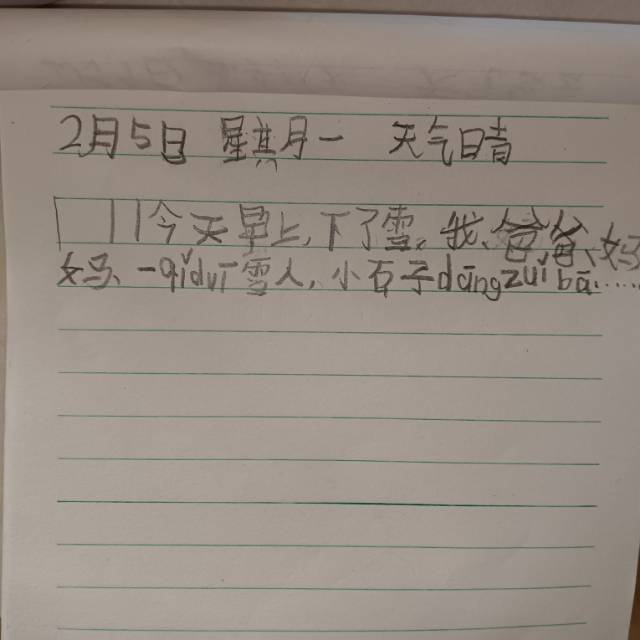 2月5日 星其月一 天气日青
今天早上,下了雪。我、爸爸、妈
妈、一qǐduī雪人,小石子dāngzuǐbā……